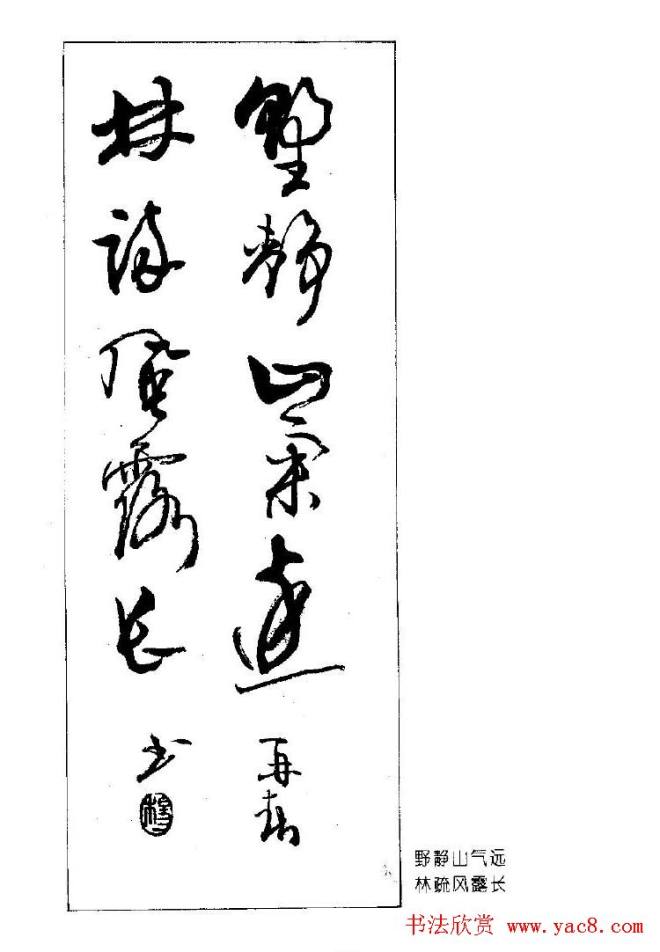 野静山氣遠
林疏風露长
书
野静山气远
林疏风露长
书法欣赏 www.yac8.com